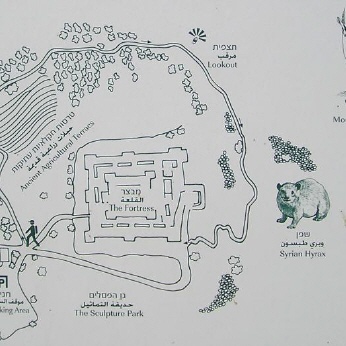 תצפית
مرقب
Lookout
טרסות חקלאיות עתיקות
Ancient Agricultural Terraces
מבצר
القلعة
The Fortress
Mo
שפן
وبري طبسون
Syrian Hyrax
גן הפסלים
حديقة التماثيل
The Sculpture Park
P
king Area